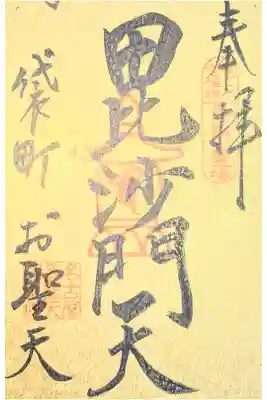 奉拝
毘沙門天
袋町 お聖天